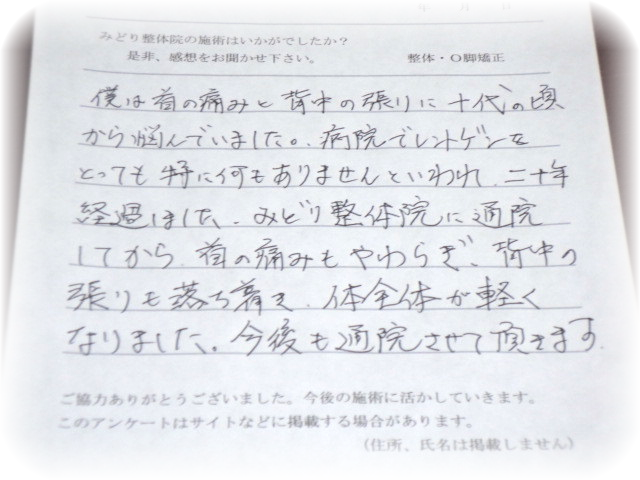 年 月 日
みどり整体院の施術はいかがでしたか？
是非、感想をお聞かせ下さい。 整体・O脚矯正
僕は首の痛みと背中の張りに十代の頃
から悩んでいました。病院でレントゲンを
とっても特に何もありませんといわれ、二十年
経過しました、みどり整体院に通院
してから、首の痛みもやわらぎ、背中の
張りも落ち着き、体全体が軽く
なりました。今後も通院させて頂きます
ご協力ありがとうございました。今後の施術に活かしていきます。
このアンケートはサイトなどに掲載する場合があります。
（住所、氏名は掲載しません）